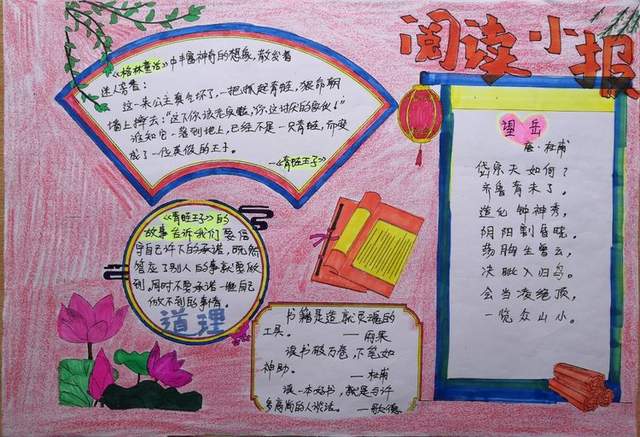 阅读小报
《格林童话》中丰富神奇的想象,散发着
迷人芳香:
这一来公主真气坏了,一把抓起青蛙,狠命朝
墙上摔去:“这下你该老实啦,你这讨厌的家伙!”
谁知它一落到地上,已经不是一只青蛙,而变
成了一位英俊的王子。
—《青蛙王子》
《青蛙王子》的
故事告诉我们要信
守自己许下的承诺,既然
答应了别人的事就要做
到,同时不要承诺一些自己
做不到的事情。
道理
书籍是造就灵魂的
工具。 —雨果
读书破万卷,下笔如
神助。 —杜甫
读一本好书,就是与许
多高尚的人谈话。 —歌德
望岳
唐·杜甫
岱宗夫如何?
齐鲁青未了。
造化钟神秀,
阴阳割昏晓。
荡胸生曾云,
决眦入归鸟。
会当凌绝顶,
一览众山小。